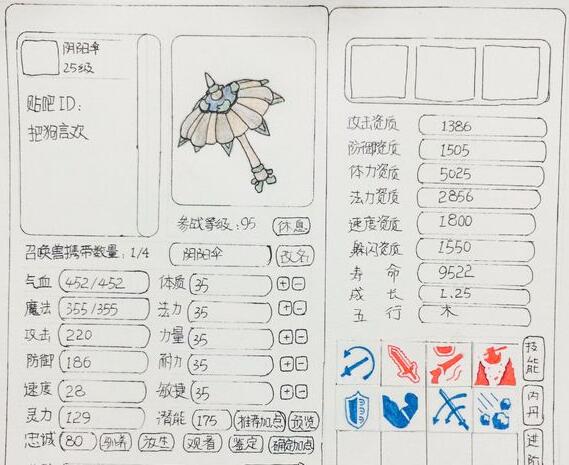 阴阳伞
25级
贴吧ID:
把狗言欢
参战等级:95 休息
召唤兽携带数量:1/4 阴阳伞 改名
气血 452/452 体质 35
魔法 355/355 法力 35
攻击 220 力量 35
防御 186 耐力 35
速度 28 敏捷 35
灵力 129 潜能 175 推荐加点 预览
忠诚 80 驯养 放生 观看 鉴定 确定加点
攻击资质 1386
防御资质 1505
体力资质 5025
法力资质 2856
速度资质 1800
躲闪资质 1550
寿命 9522
成长 1.25
五行 木
技能
内丹
进阶